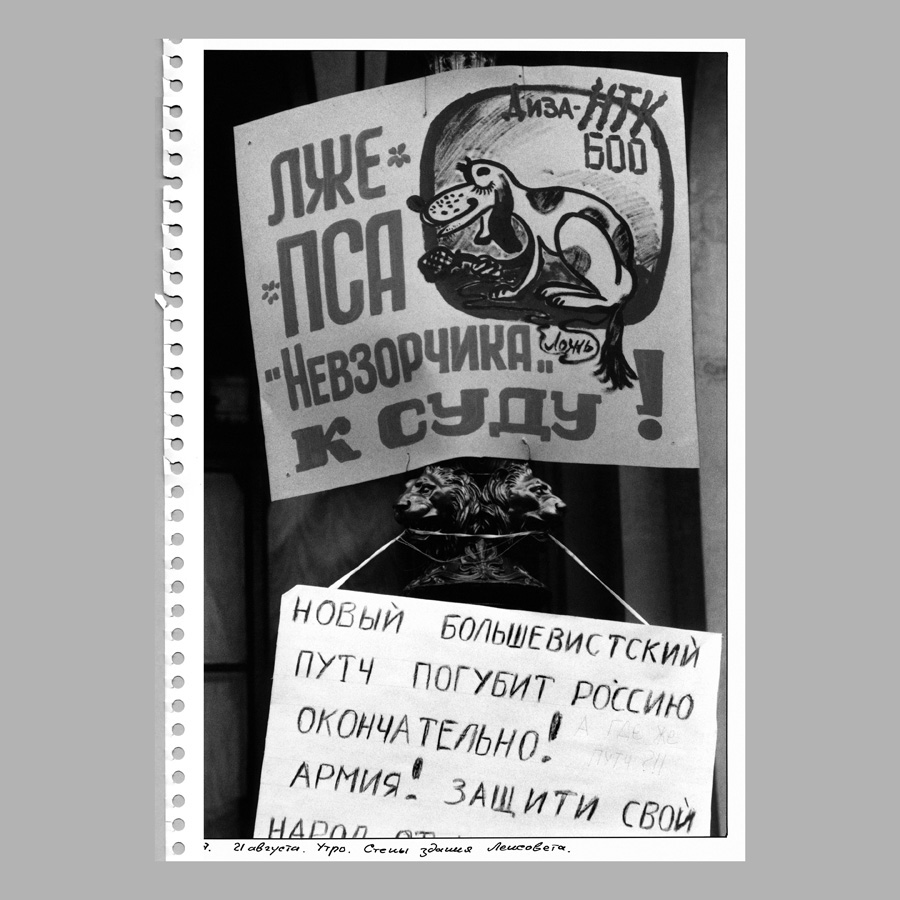 ЛЖЕ-
ПСА
"НЕВЗОРЧИКА"
К СУДУ!
Диза-НТК
600
Ложь
НОВЫЙ БОЛЬШЕВИСТСКИЙ
ПУТЧ ПОГУБИТ РОССИЮ
ОКОНЧАТЕЛЬНО!
А ГДЕ ЖЕ
ПУТЧ ?!!
АРМИЯ! ЗАЩИТИ СВОЙ
НАРОД ОТ
7. 21 августа. Утро. Стены здания Ленсовета.